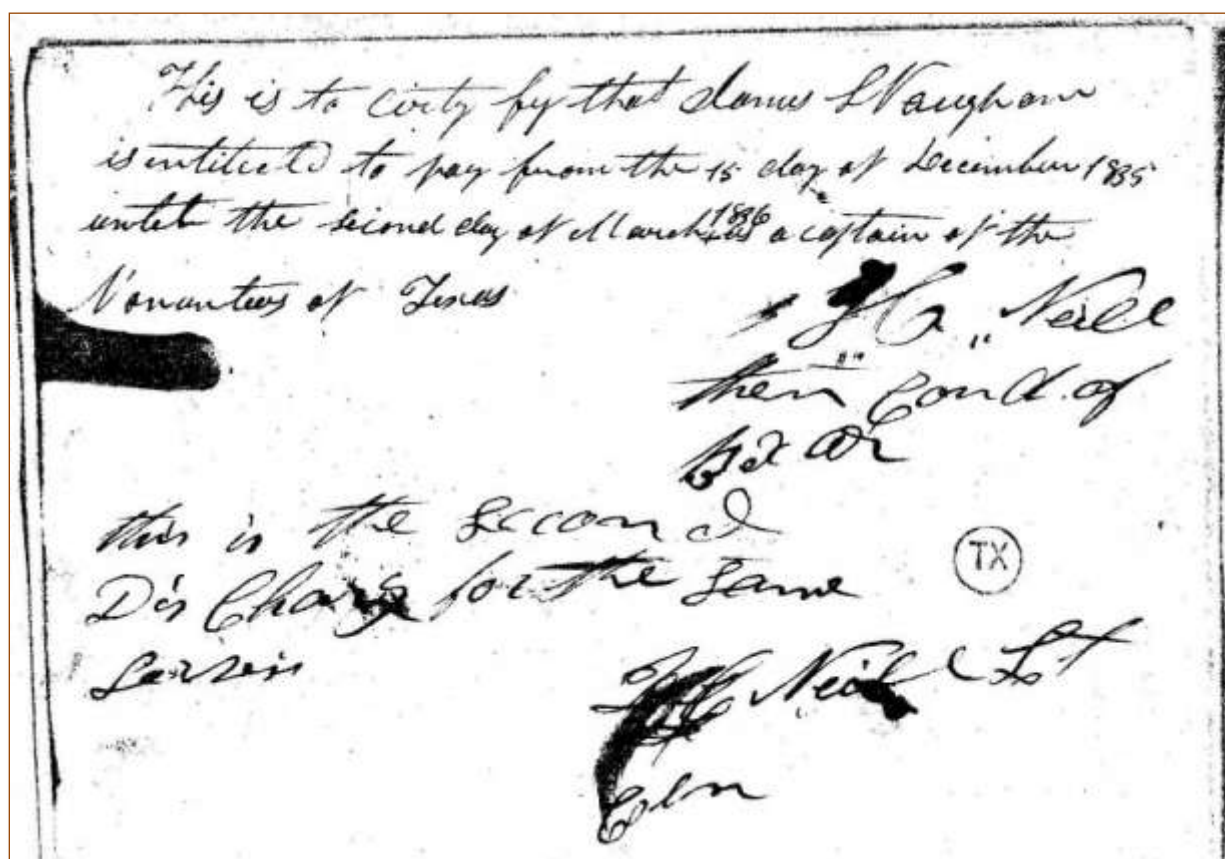 This is to certy fy that James L Vaughan
is entitled to pay from the 15 day of December 1835
untill the second day of March 1836 as a captain of the
Vonunteers of Texas
J C Neill
then Comd. of
Bexar
this is the second
Dis Charg for the same
Servis
J C Neill Lt
Coln
TX